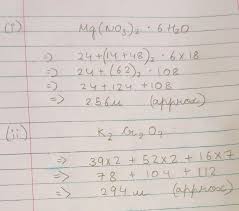 (i) Mg(NO3)2 · 6H2O
=> 24+(14+48)2 · 6x18
=> 24+(62)2 · 108
=> 24+124+108
=> 256u (approx)
(ii) K2 Cr2 O7
=> 39x2 + 52x2 + 16x7
=> 78 + 104 + 112
=> 294u (approx)